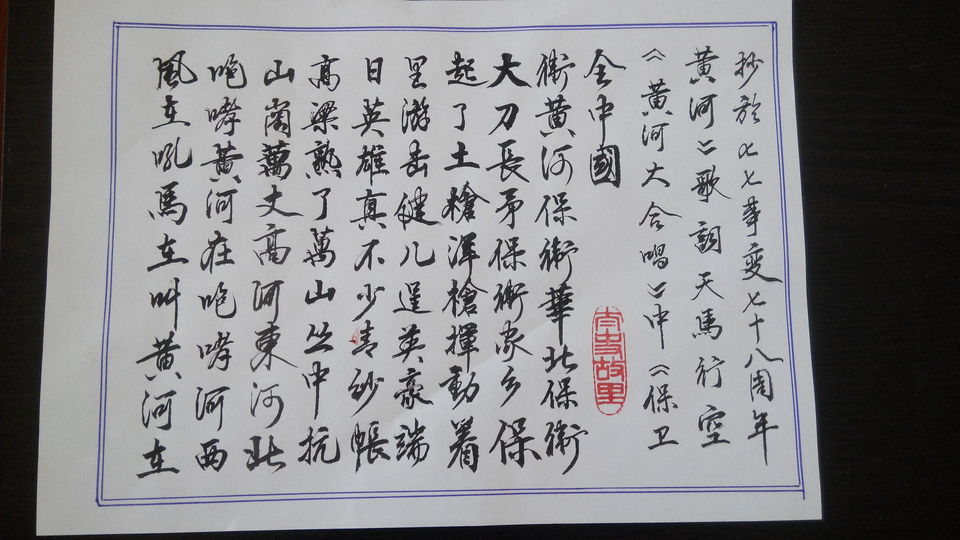 風在吼馬在叫黃河在
咆哮黃河在咆哮河西
山崗萬丈高河東河北
高梁熟了萬山丛中抗
日英雄真不少青紗帳
里游击健儿逞英豪端
起了土槍洋槍揮動着
大刀長矛保衛家乡保
衛黃河保衛華北保衛
全中國
《黃河大合唱》中《保卫
黃河》歌詞天馬行空
抄於七七事變七十八周年
太史故里